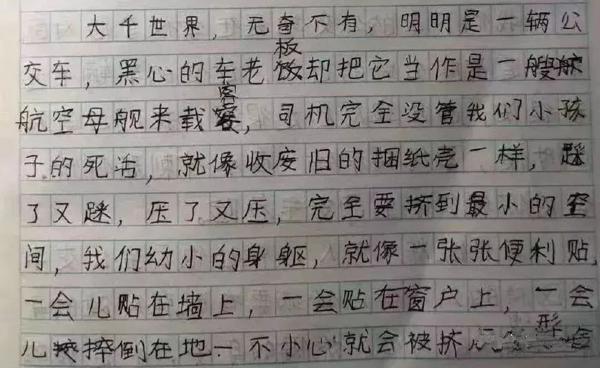 大千世界，无奇不有，明明是一辆公
交车，黑心的车老板却把它当作是一艘
航空母舰来载客，司机完全没管我们小孩
子的死活，就像收废旧的捆纸壳一样，踩
了又踩，压了又压，完全要挤到最小的空
间，我们幼小的身躯，就像一张张便利贴，
一会儿贴在墙上，一会贴在窗户上，一会
儿摔倒在地一不小心就会被挤
形